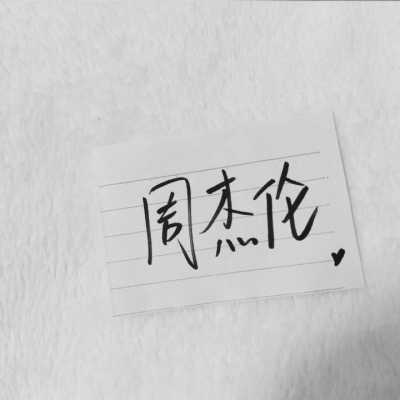 周杰伦